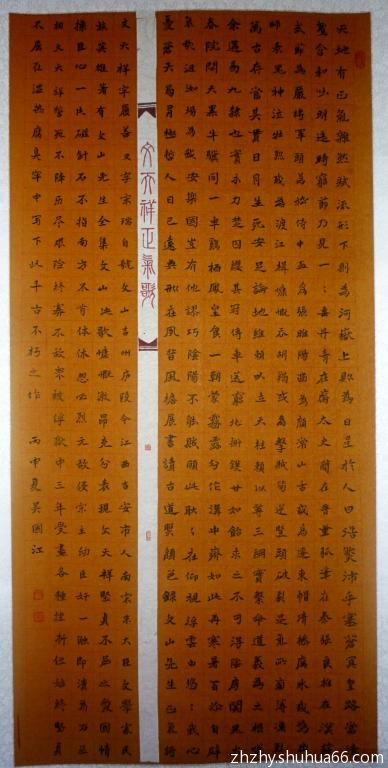 天地有正氣雜然賦流形下則為河嶽上則為日星於人曰浩然沛乎塞蒼冥皇路當清
夷含和吐明廷時窮節乃見一一垂丹青在齊太史簡在晉董狐筆在秦張良椎在漢蘇
武節為嚴將軍頭為嵇侍中血為張睢陽齒為顏常山舌或為遼東帽清操厲冰雪或為出
師表鬼神泣壯烈或為渡江楫慷慨吞胡羯或為擊賊笏逆豎頭破裂是氣所磅礴凜烈
萬古存當其貫日月生死安足論地維賴以立天柱賴以尊三綱實繫命道義為之根嗟
余遘陽九隸也實不力楚囚纓其冠傳車送窮北鼎鑊甘如飴求之不可得陰房闃鬼火
春院閟天黑牛驥同一皁雞棲鳳凰食一朝蒙霧露分作溝中瘠如此再寒暑百沴自辟
沮洳場為我安樂國豈有他謬巧陰陽不能賊顧此耿耿在仰視浮雲白悠悠我心
憂蒼天曷有極哲人日已遠典刑在夙昔風簷展書讀古道照顏色錄文山先生正氣歌
文天祥正氣歌
文天祥字履善又字宋瑞自號文山吉州廬陵今江西吉安市人南宋末大臣文學家民
族英雄著有文山先生全集文山此歌慷慨激昂充分表現文天祥堅貞不屈之愛國情
操臣心一片磁針石不指南方不肯休
相文天祥誓死不降歷盡艱險終不放棄被俘獄中三年受盡各種始終堅貞
不屈在濕熱腐臭牢中寫下此千古不朽之作 丙申夏吳國江
zhzhy.shuhua66.com